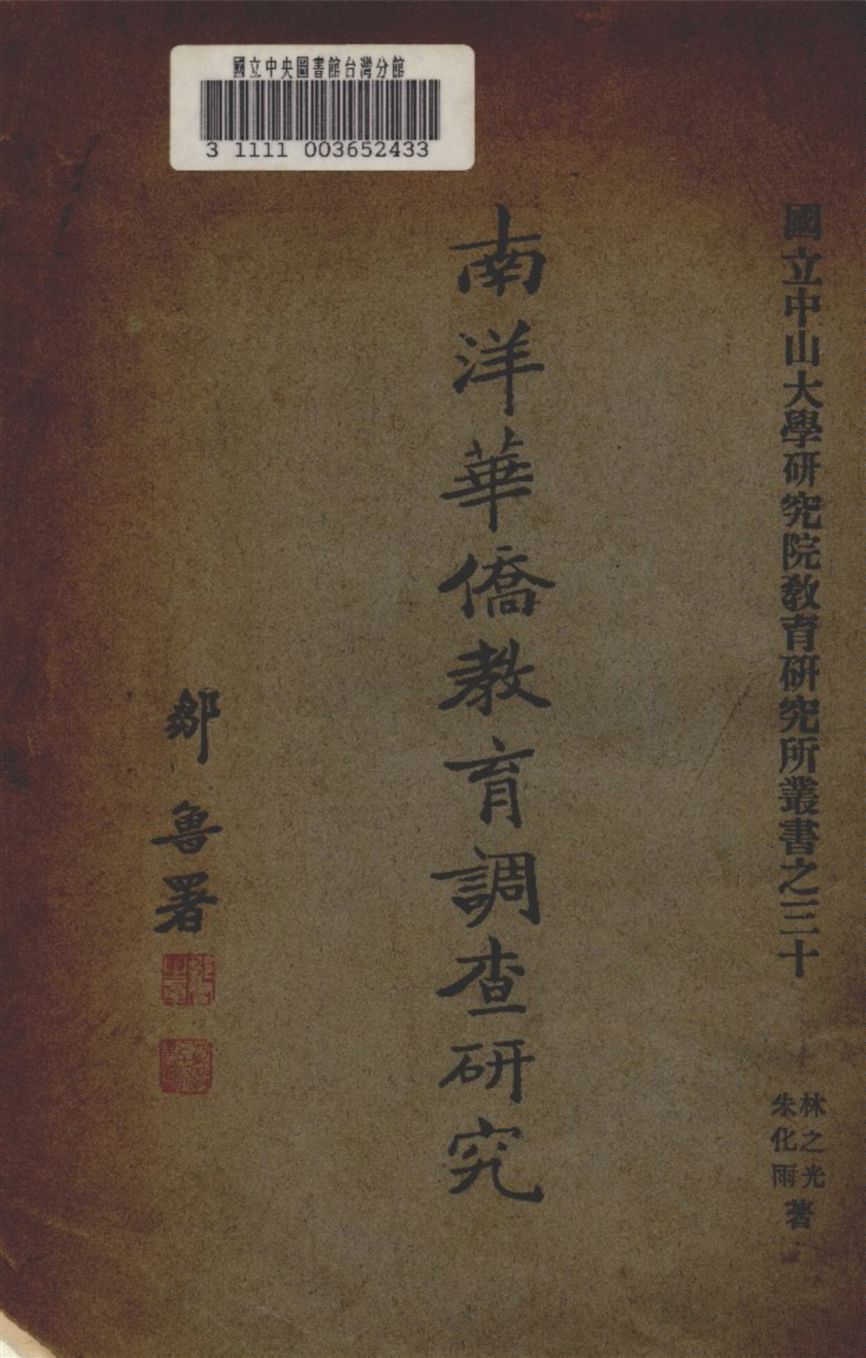 國立中央圖書館台灣分館
3 1111 003652433
國立中山大學研究院教育研究所叢書之三十
林之光
朱化雨
著
南洋華僑教育調查研究
鄒魯署